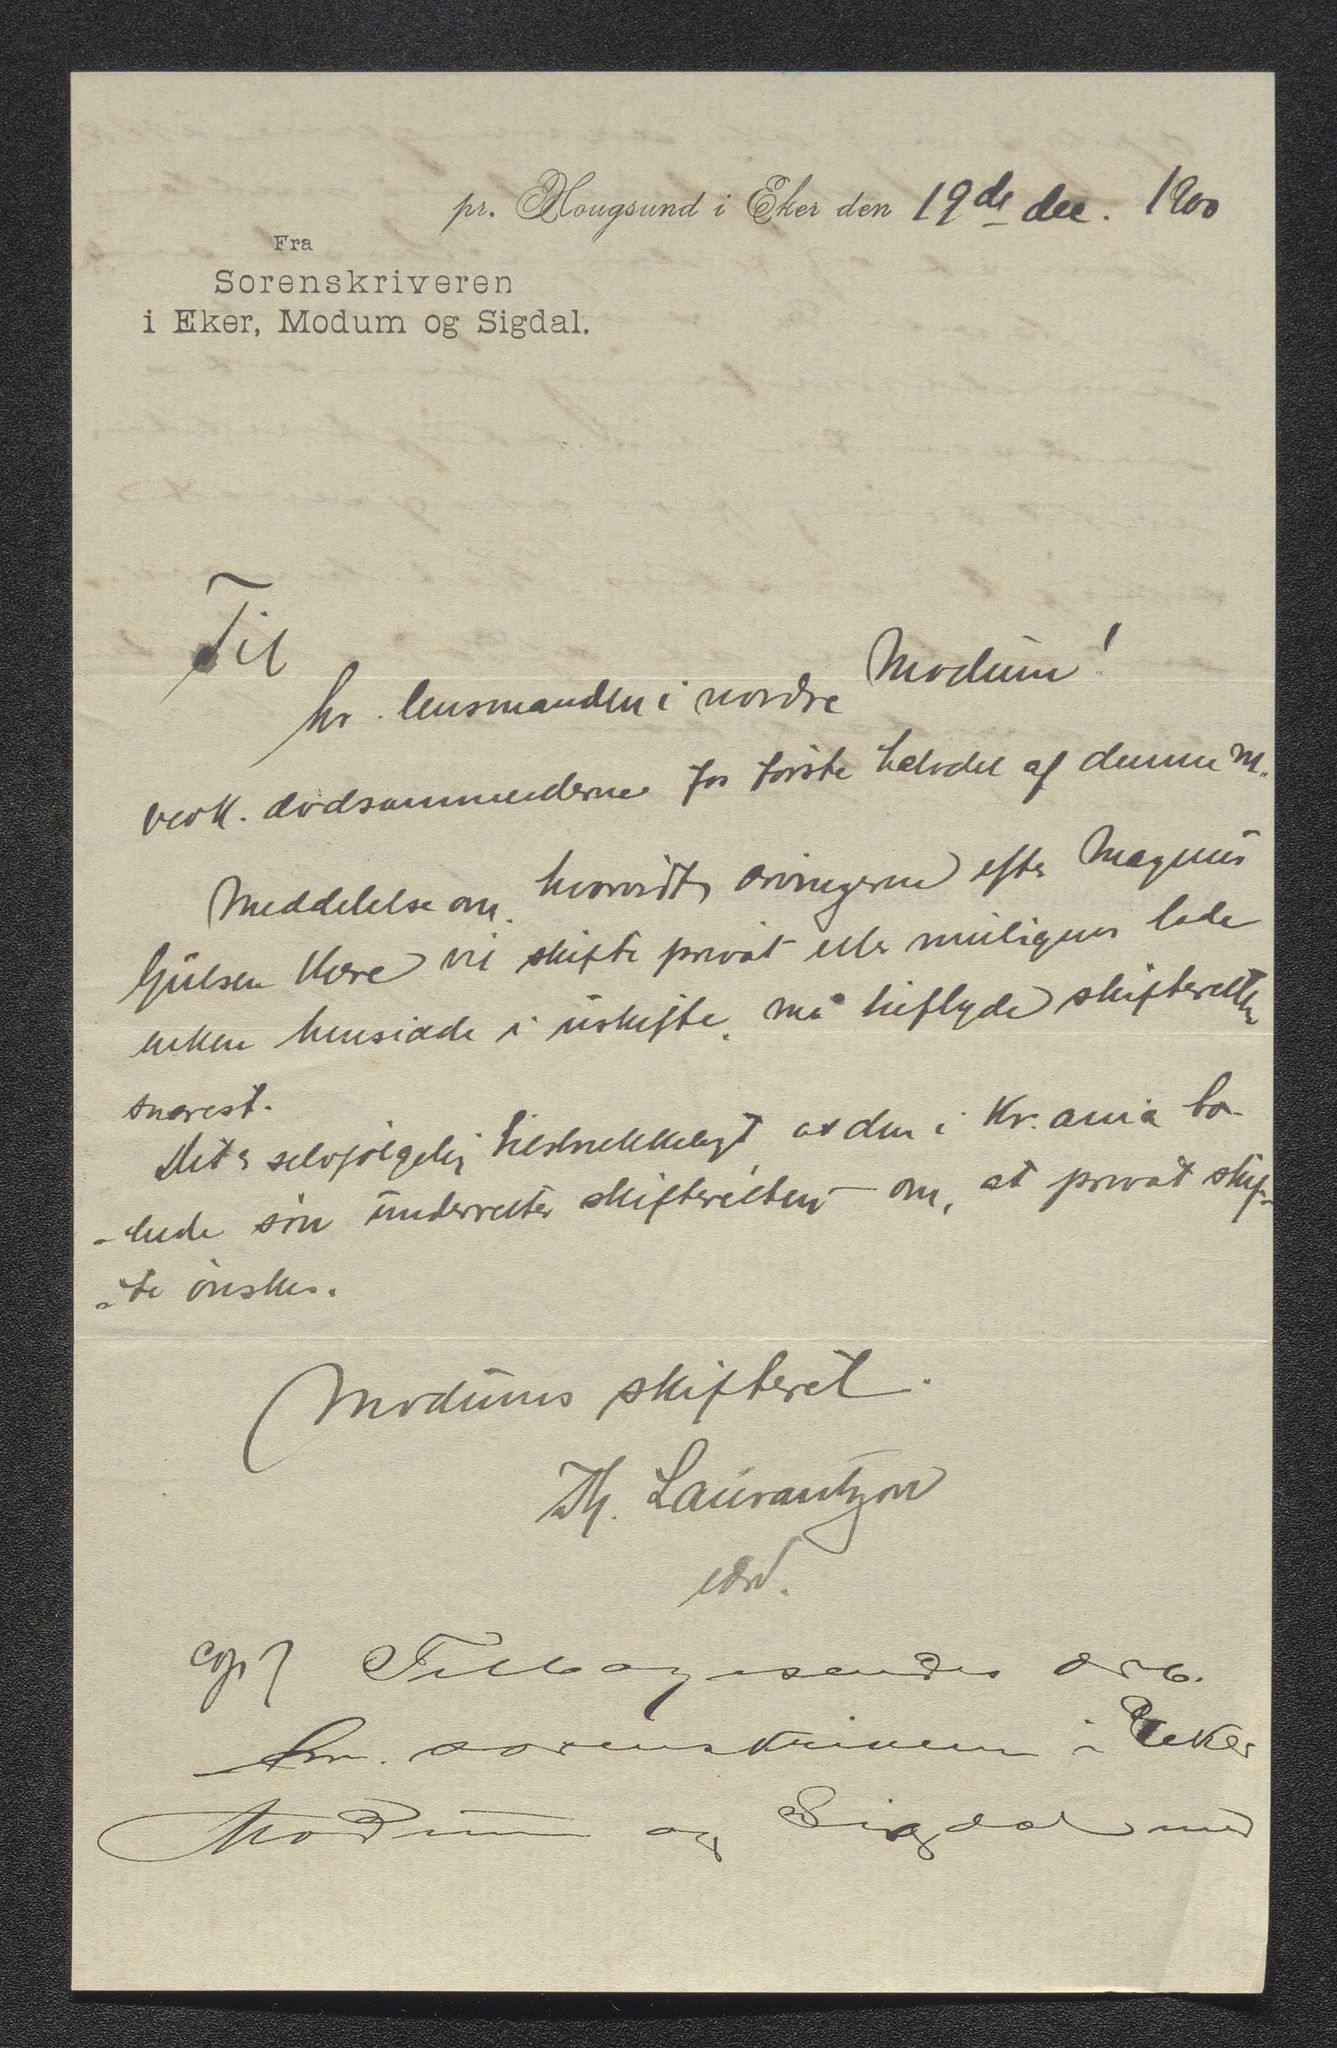 pr. Hougsund i Eker den 19de dec. 1900
Fra
Sorenskriveren
i Eker, Modum og Sigdal.
Til
hr. lensmanden i nordre Modum!
vedk. dødsanmeldernes for første halvdel af denne m.
Meddelelse om, hvorvidt arvingerne efter Magnus
Gulsen Kære vil skifte privat eller muligens lade
enken hensidde i uskifte, må tilflyde skifteretten
snarest.
Det er selvfølgelig tilstrækkeligt at den i Kr.ania bo-
-ende søn underretter skifteretten om, at privat skif-
-te ønskes.
Modums skifteret.
Th. Laurantzon
edsv.
Tilbagesendes
hr. sorenskriveren i Eker
Modum og Sigdal med